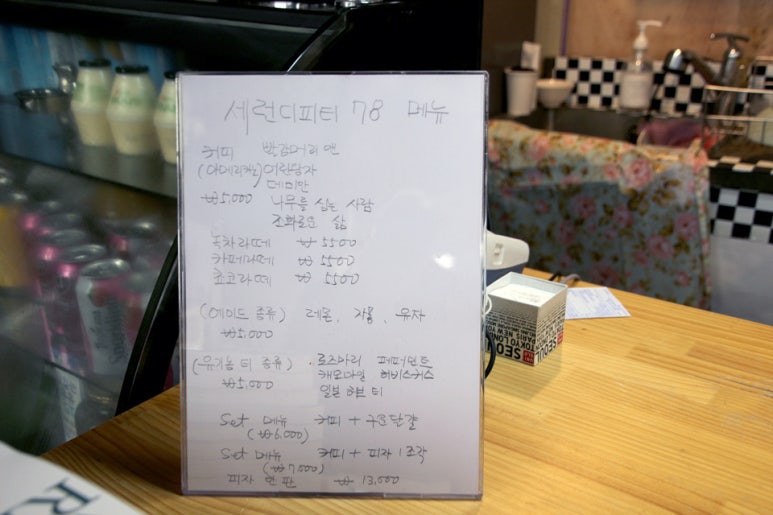 세런디피티 78 메뉴
커피 빨강머리 앤
(아메리카노) 어린왕자
데미안
₩5,000 나무를 심는 사람
조화로운 삶
녹차라떼 ₩5500
카페라떼 ₩5500
쵸코라떼 ₩5500
(에이드 종류) 레몬, 자몽, 유자
₩5,000
(유기농 티 종류) . 로즈마리 페퍼먼트
₩5,000 캐모마일 히비스커스
일본 허브 티
Set 메뉴 커피 + 구운달걀
(₩6,000)
Set 메뉴 커피 + 피자 1조각
(₩7,000)
피자 한 판 ₩13,000
SEOUL